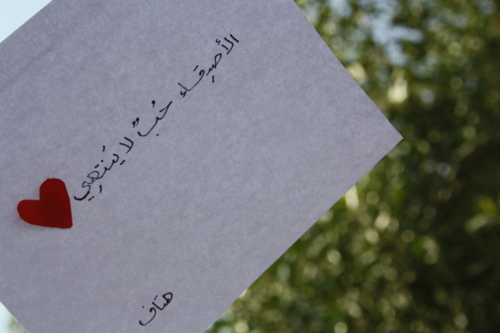 الأصدقاء حُبٌ لا يَنتَهِي
هتاف